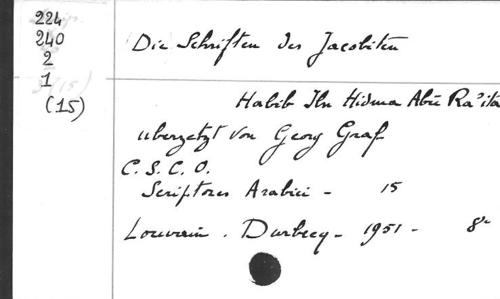 224
240
2
1
(15)
Die Schriften des Jacobiten
Habib Ibn Hidma Abū Ra'ita
übersetzt von Georg Graf
C. S. C. O.
Scriptores Arabici - 15
Louvain. Durbecq - 1951 - 8°